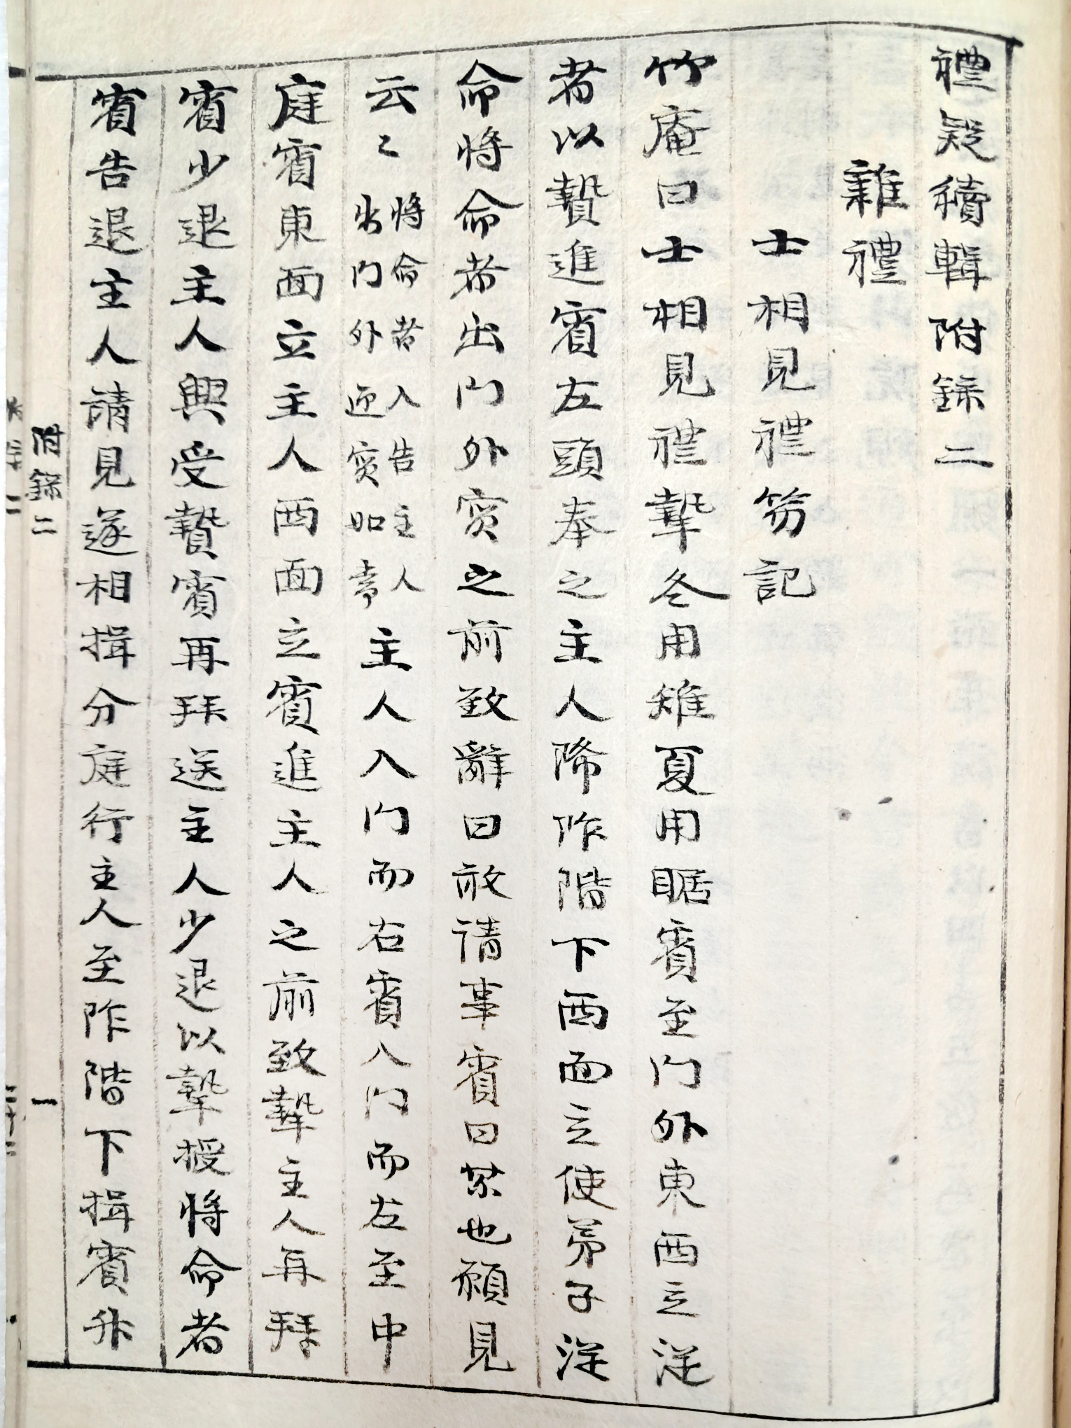 禮疑續輯附録二
雜禮
士相見禮笏記
竹庵曰士相見禮摯冬用雉夏用腒賓至門外東西立從
者以贄進賓左頭奉之主人降阼階下西面立使弟子從
命將命者出門外賓之前致辭曰敢請事賓曰某也願見
云々將命者入告主人出門外迎賓如章主人入門而右賓入門而左至中
庭賓東面立主人西面立賓進主人之前致摯主人再拜
賓少退主人興受贄賓再拜送主人少退以摯授將命者
賓告退主人請見遂相揖分庭行主人至阼階下揖賓升
附錄二
一